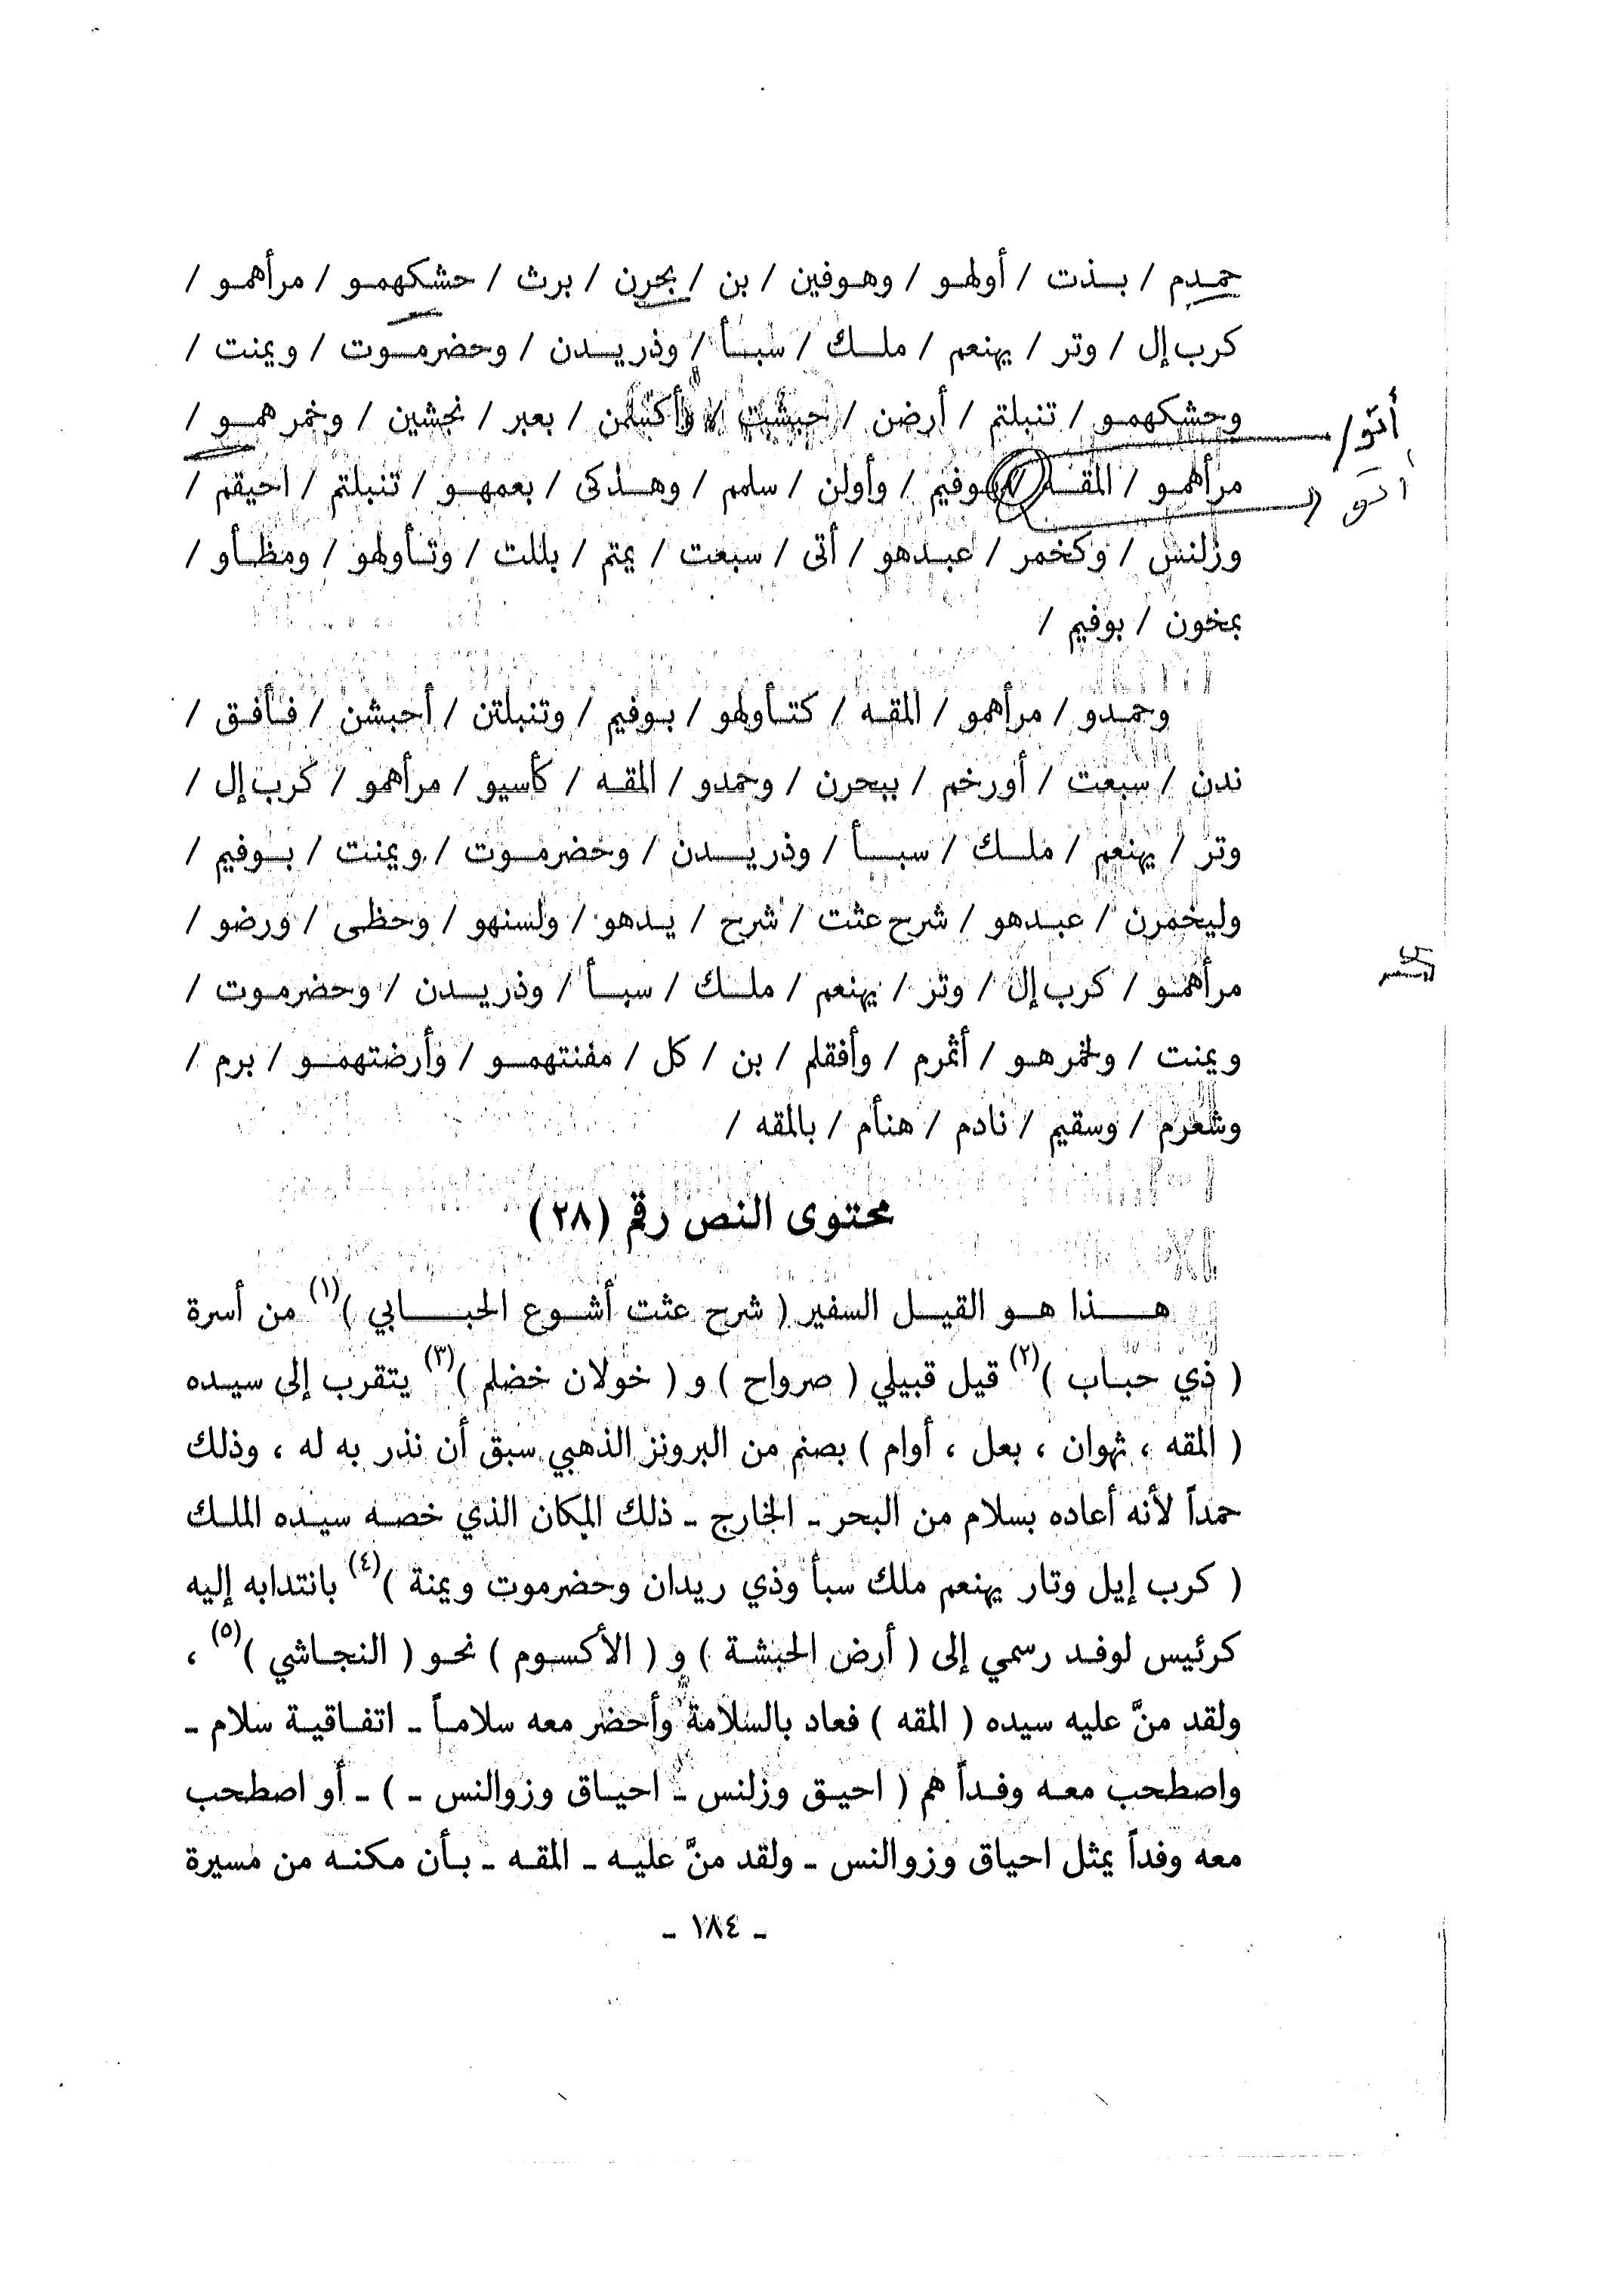 حمدم / بذت / أولهو / وهوفين / بن / بحرن / برث / حشكهمو / مرأهمو /
كرب إل / وتر / يهنعم / ملك / سبأ / وذريدن / وحضرموت / ويمنت /
وحشكهمو / تنبلتم / أرضن / حبشت / وأكسمن / بعبر / نجشين / وخمرهمو /
أتو /
مرأهمو / المقه / بوفيم / وأولن / سلمم / وهذكى / بعمهو / تنبلتم / احيقم /
أتو /
وزلنس / وكخمر / عبدهو / أتى / سبعت / يمتم / بللت / وتأولهو / ومظأو /
بمخون / بوفيم /
وحمدو / مرأهمو / المقه / كتأولهو / بوفيم / وتنبلتن / أحبشن / فأفق /
ندن / سبعت / أورخم / ببحرن / وحمدو / المقه / كأسيو / مرأهمو / كرب إل /
وتر / يهنعم / ملك / سبأ / وذريدن / وحضرموت / ويمنت / بوفيم /
وليخمرن / عبدهو / شرح عثت / شرح / يدهو / ولسنهو / وحظى / ورضو /
مرأهمو / كرب إل / وتر / يهنعم / ملك / سبأ / وذريدن / وحضرموت /
ويمنت / ولخمرهو / أثمرم / وأفقلم / بن / كل / مفنتهمو / وأرضتهمو / برم /
وشعرم / وسقيم / نادم / هنأم / بالمقه /
محتوى النص رقم (٢٨)
هذا هو القيل السفير ( شرح عثت أشوع الحبابي )(١) من أسرة
( ذي حباب )(٢) قيل قبيلي ( صرواح ) و ( خولان خضلم )(٣) يتقرب إلى سيده
( المقه ، ثهوان ، بعل ، أوام ) بصنم من البرونز الذهبي سبق أن نذر به له ، وذلك
حمداً لأنه أعاده بسلام من البحر - الخارج - ذلك المكان الذي خصه سيده الملك
( كرب إيل وتار يهنعم ملك سبأ وذي ريدان وحضرموت ويمنة )(٤) بانتدابه إليه
كرئيس لوفد رسمي إلى ( أرض الحبشة ) و ( الأكسوم ) نحو ( النجاشي )(٥) ،
ولقد منَّ عليه سيده ( المقه ) فعاد بالسلامة وأحضر معه سلاماً - اتفاقية سلام -
واصطحب معه وفداً هم ( احيق وزلنس - احياق وزوالنس - ) - أو اصطحب
معه وفداً يمثل احياق وزوالنس - ولقد منَّ عليه - المقه - بأن مكنه من مسيرة
- ١٨٤ -